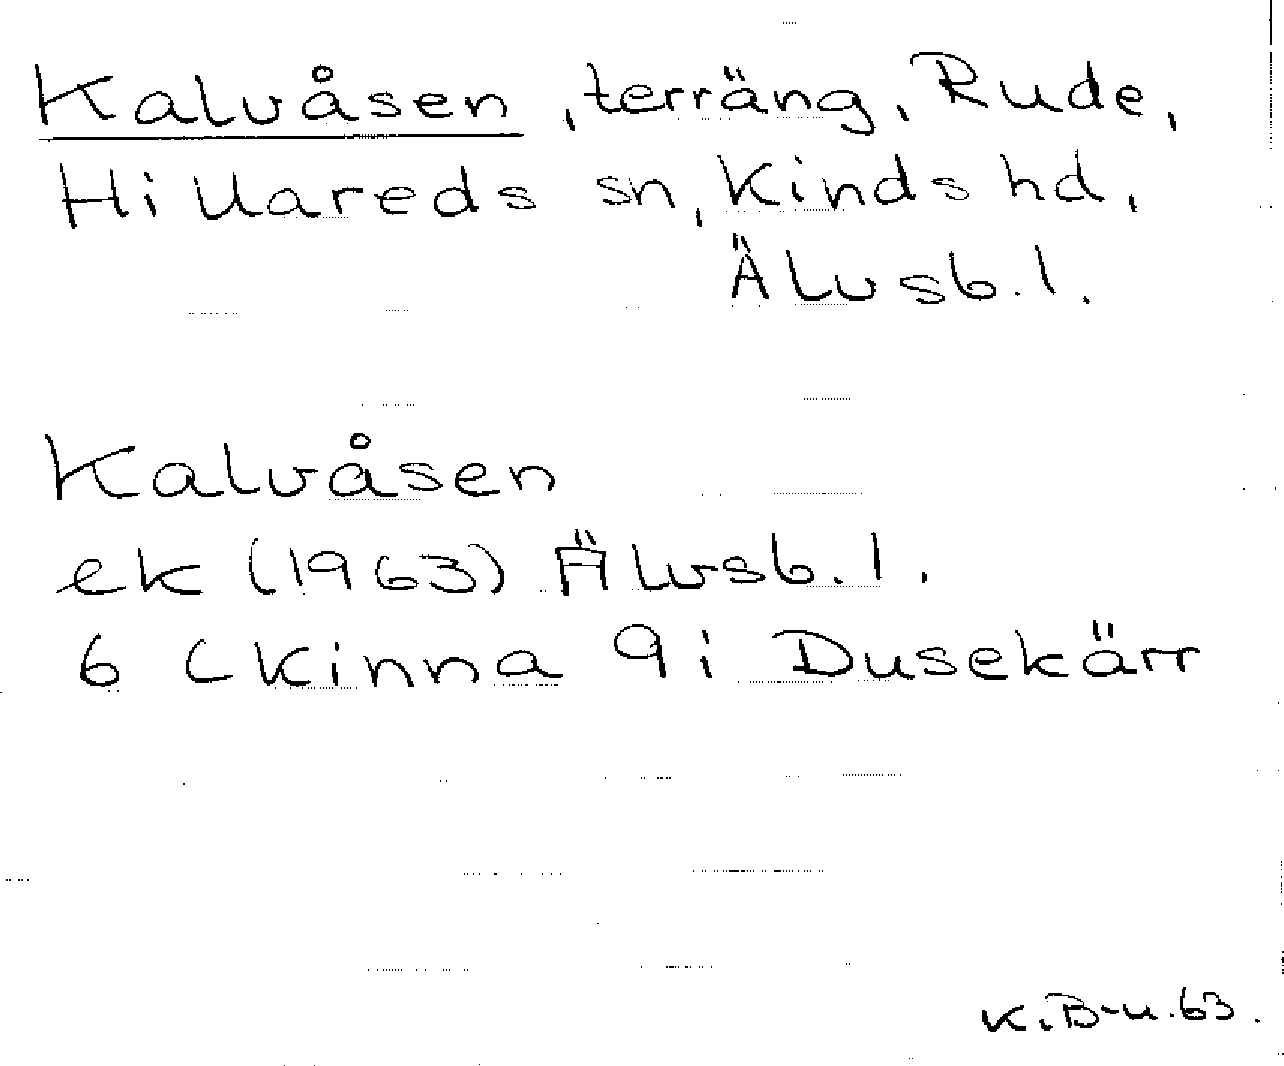 Kalvåsen, terräng, Rude,
Hillareds sn, Kinds hd,
Älvsb.l.
Kalvåsen
ek (1963) Älvsb.l.
6 C Kinna 9 i Dusekärr
K.B-u.63.